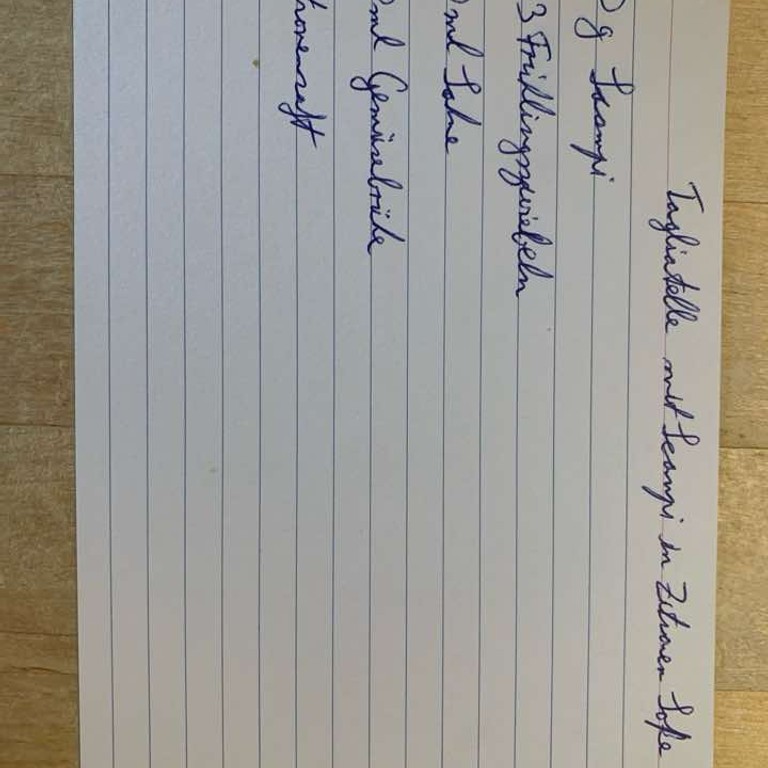 Tagliatelle mit Scampi in Zitronen Soße
0 g Scampi
3 Frühlingszwiebeln
0 ml Sahne
0 ml Gemüsebrühe
tronensaft